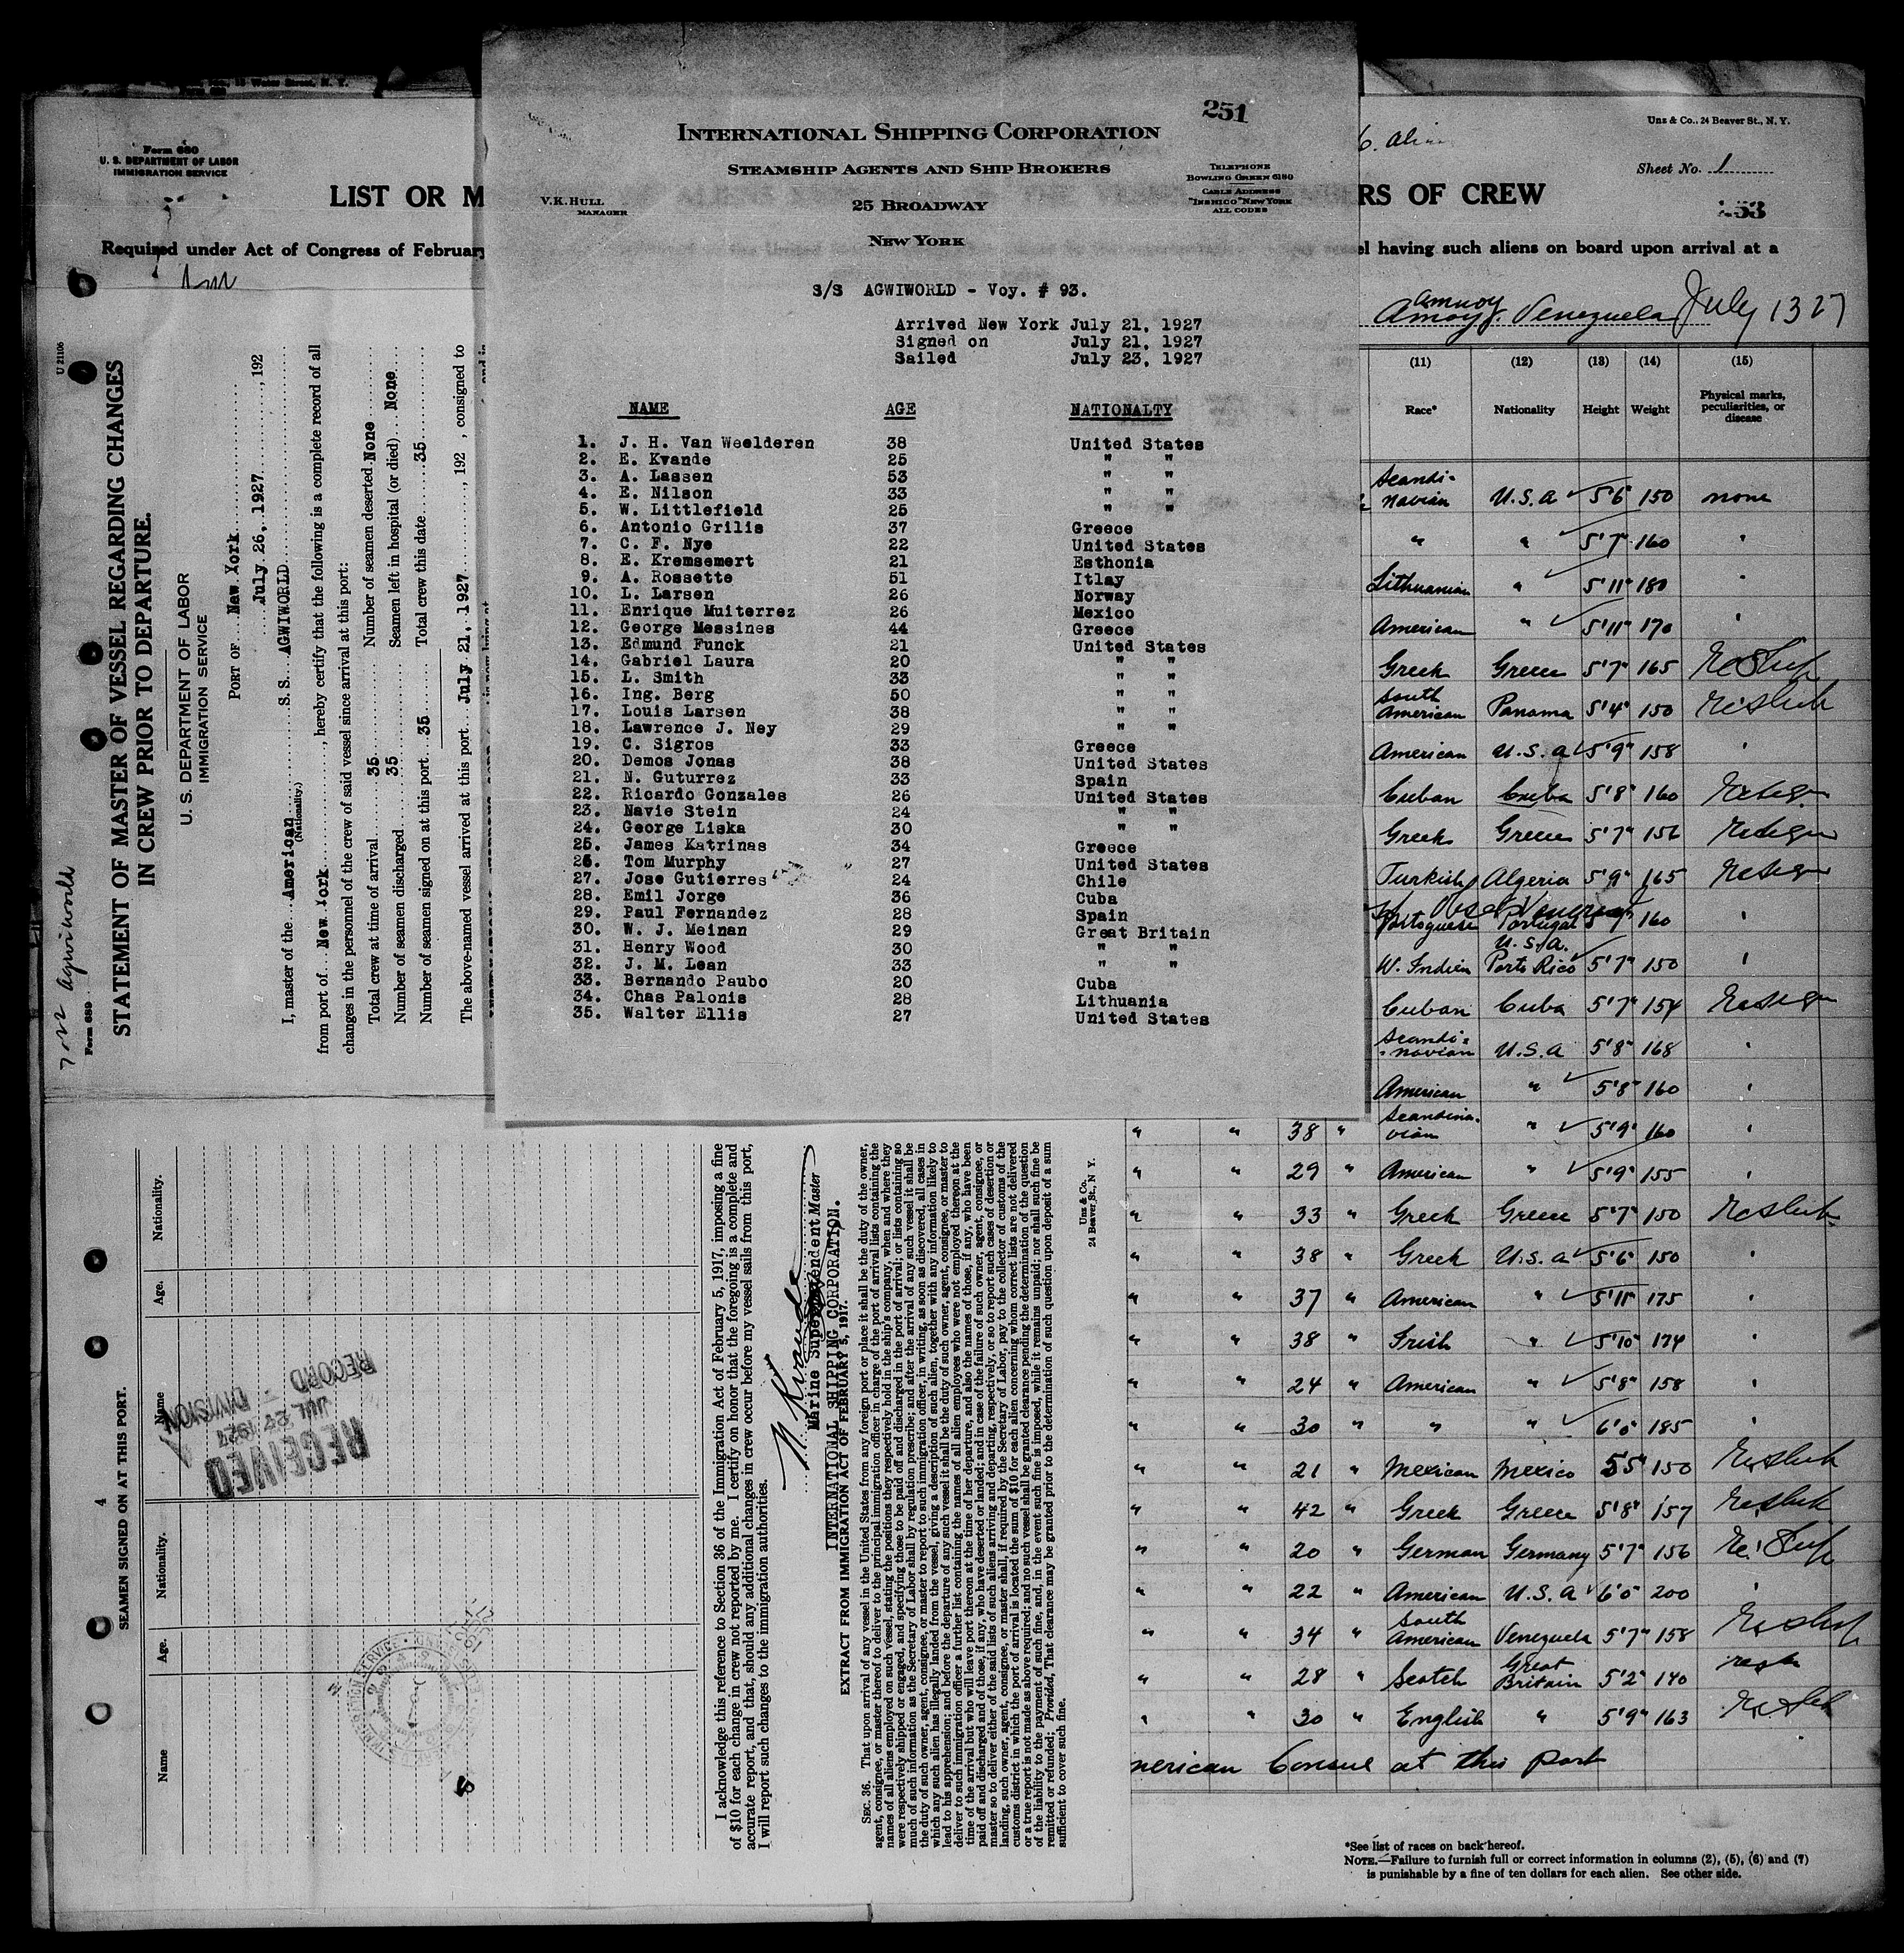 251
INTERNATIONAL SHIPPING CORPORATION
STEAMSHIP AGENTS AND SHIP BROKERS
TELEPHONE
BOWLING GREEN 6180
CABLE ADDRESS
"INSHICO" NEW YORK
ALL CODES
V.K. HULL
MANAGER
25 BROADWAY
NEW YORK
S/S AGWIWORLD - Voy. # 93.
Arrived New York July 21, 1927
Signed on July 21, 1927
Sailed July 23, 1927
NAME AGE NATIONALTY
1. J. H. Van Weelderen 38 United States
2. E. Kvande 25 " "
3. A. Lassen 53 " "
4. E. Nilson 33 " "
5. W. Littlefield 25 " "
6. Antonio Grilis 37 Greece
7. C. F. Nye 22 United States
8. E. Kremsemert 21 Esthonia
9. A. Rossette 51 Itlay
10. L. Larsen 26 Norway
11. Enrique Muiterrez 26 Mexico
12. George Messines 44 Greece
13. Edmund Funck 21 United States
14. Gabriel Laura 20 " "
15. L. Smith 33 " "
16. Ing. Berg 50 " "
17. Louis Larsen 38 " "
18. Lawrence J. Ney 29 " "
19. C. Sigros 33 Greece
20. Demos Jonas 38 United States
21. N. Guturrez 33 Spain
22. Ricardo Gonzales 26 United States
23. Navie Stein 24 " "
24. George Liska 30 " "
25. James Katrinas 34 Greece
26. Tom Murphy 27 United States
27. Jose Gutierres 24 Chile
28. Emil Jorge 36 Cuba
29. Paul Fernandez 28 Spain
30. W. J. Meinan 29 Great Britain
31. Henry Wood 30 " "
32. J. M. Lean 33 " "
33. Bernando Paubo 20 Cuba
34. Chas Palonis 28 Lithuania
35. Walter Ellis 27 United States
Form 680
U. S. DEPARTMENT OF LABOR
IMMIGRATION SERVICE
LIST OR M
Required under Act of Congress of February
Unz & Co., 24 Beaver St., N. Y.
Sheet No. 1
RS OF CREW
253
el having such aliens on board upon arrival at a
Amuay Venezuela July 13 27
(11) (12) (13) (14) (15)
Race* Nationality Height Weight Physical marks, peculiarities, or disease
Scandinavian U.S.A 5'6" 150 none
" " 5'7" 160 "
Lithuanian " 5'11" 180 "
American " 5'11" 170 "
Greek Greece 5'7" 165
South American Panama 5'4" 150
American U.S.A 5'9" 158 "
Cuban Cuba 5'8" 160
Greek Greece 5'7" 156
Turkish Algeria 5'9" 165
Portoguese Portugal 5'7" 160 "
W. Indien U.S.A. Porto Rico 5'7" 150 "
Cuban Cuba 5'7" 154
Scandinavian U.S.A 5'8" 168 "
American " 5'8" 160 "
" " 38 " Scandinavian " 5'9" 160 "
" " 29 " American " 5'9" 155 "
" " 33 " Greek Greece 5'7" 150
" " 38 " Greek U.S.A 5'6" 150 "
" " 37 " American " 5'11" 175 "
" " 38 " Irish " 5'10" 174 "
" " 24 " American " 5'8" 158 "
" " 30 " " " 6'0" 185 "
" " 21 " Mexican Mexico 5'5" 150
" " 42 " Greek Greece 5'8" 157
" " 20 " German Germany 5'7" 156
" " 22 " American U.S.A 6'0" 200 "
" " 34 " South American Venezuela 5'7" 158
" " 28 " Scotch Great Britain 5'2" 140
" " 30 " English " 5'9" 163
merican Consul at this port
*See list of races on back hereof.
NOTE.—Failure to furnish full or correct information in columns (2), (5), (6) and (7)
is punishable by a fine of ten dollars for each alien. See other side.
U 21106
Agwiworld
Form 689
STATEMENT OF MASTER OF VESSEL REGARDING CHANGES
IN CREW PRIOR TO DEPARTURE.
U. S. DEPARTMENT OF LABOR
IMMIGRATION SERVICE
PORT OF New York
July 26, 1927, 192
I, master of the American S. S. AGWIWORLD
(Nationality.)
from port of New York, hereby certify that the following is a complete record of all
changes in the personnel of the crew of said vessel since arrival at this port:
Total crew at time of arrival 35 Number of seamen deserted None
Number of seamen discharged 35 Seamen left in hospital (or died) None
Number of seamen signed on at this port 35 Total crew this date 35
The above-named vessel arrived at this port July 21, 1927, 192 , consigned to
4
SEAMEN SIGNED ON AT THIS PORT.
Name Age. Nationality. Name Age. Nationality.
RECEIVED
JUL 27 1927
RECORD DIVISION
I acknowledge this reference to Section 36 of the Immigration Act of February 5, 1917, imposing a fine
of $10 for each change in crew not reported by me. I certify on honor that the foregoing is a complete and
accurate report, and that, should any additional changes in crew occur before my vessel sails from this port,
I will report such changes to the immigration authorities.
Marine Superintendent Master
INTERNATIONAL SHIPPING CORPORATION.
EXTRACT FROM IMMIGRATION ACT OF FEBRUARY 5, 1917.
SEC. 36. That upon arrival of any vessel in the United States from any foreign port or place it shall be the duty of the owner,
agent, consignee, or master thereof to deliver to the principal immigration officer in charge of the port of arrival lists containing the
names of all aliens employed on such vessel, stating the positions they respectively hold in the ship's company, when and where they
were respectively shipped or engaged, and specifying those to be paid off and discharged in the port of arrival; or lists containing so
much of such information as the Secretary of Labor shall by regulation prescribe; and after the arrival of any such vessel it shall be
the duty of such owner, agent, consignee, or master to report to such immigration officer, in writing, as soon as discovered, all cases in
which any such alien has illegally landed from the vessel, giving a description of such alien, together with any information likely to
lead to his apprehension; and before the departure of any such vessel it shall be the duty of such owner, agent, consignee, or master to
deliver to such immigration officer a further list containing the names of all alien employees who were not employed thereon at the
time of the arrival but who will leave port thereon at the time of her departure, and also the names of those, if any, who have been
paid off and discharged and of those, if any, who have deserted or landed; and in case of the failure of such owner, agent, consignee, or
master so to deliver either of the said lists of such aliens arriving and departing, respectively, or so to report such cases of desertion or
landing, such owner, agent, consignee, or master shall, if required by the Secretary of Labor, pay to the collector of customs of the
customs district in which the port of arrival is located the sum of $10 for each alien concerning whom correct lists are not delivered
or a true report is not made as above required; and no such vessel shall be granted clearance pending the determination of the question
of the liability to the payment of such fine, and, in the event such fine is imposed, while it remains unpaid; nor shall such fine be
remitted or refunded; Provided, That clearance may be granted prior to the determination of such question upon deposit of a sum
sufficient to cover such fine.
Unz & Co.,
24 Beaver St., N. Y.